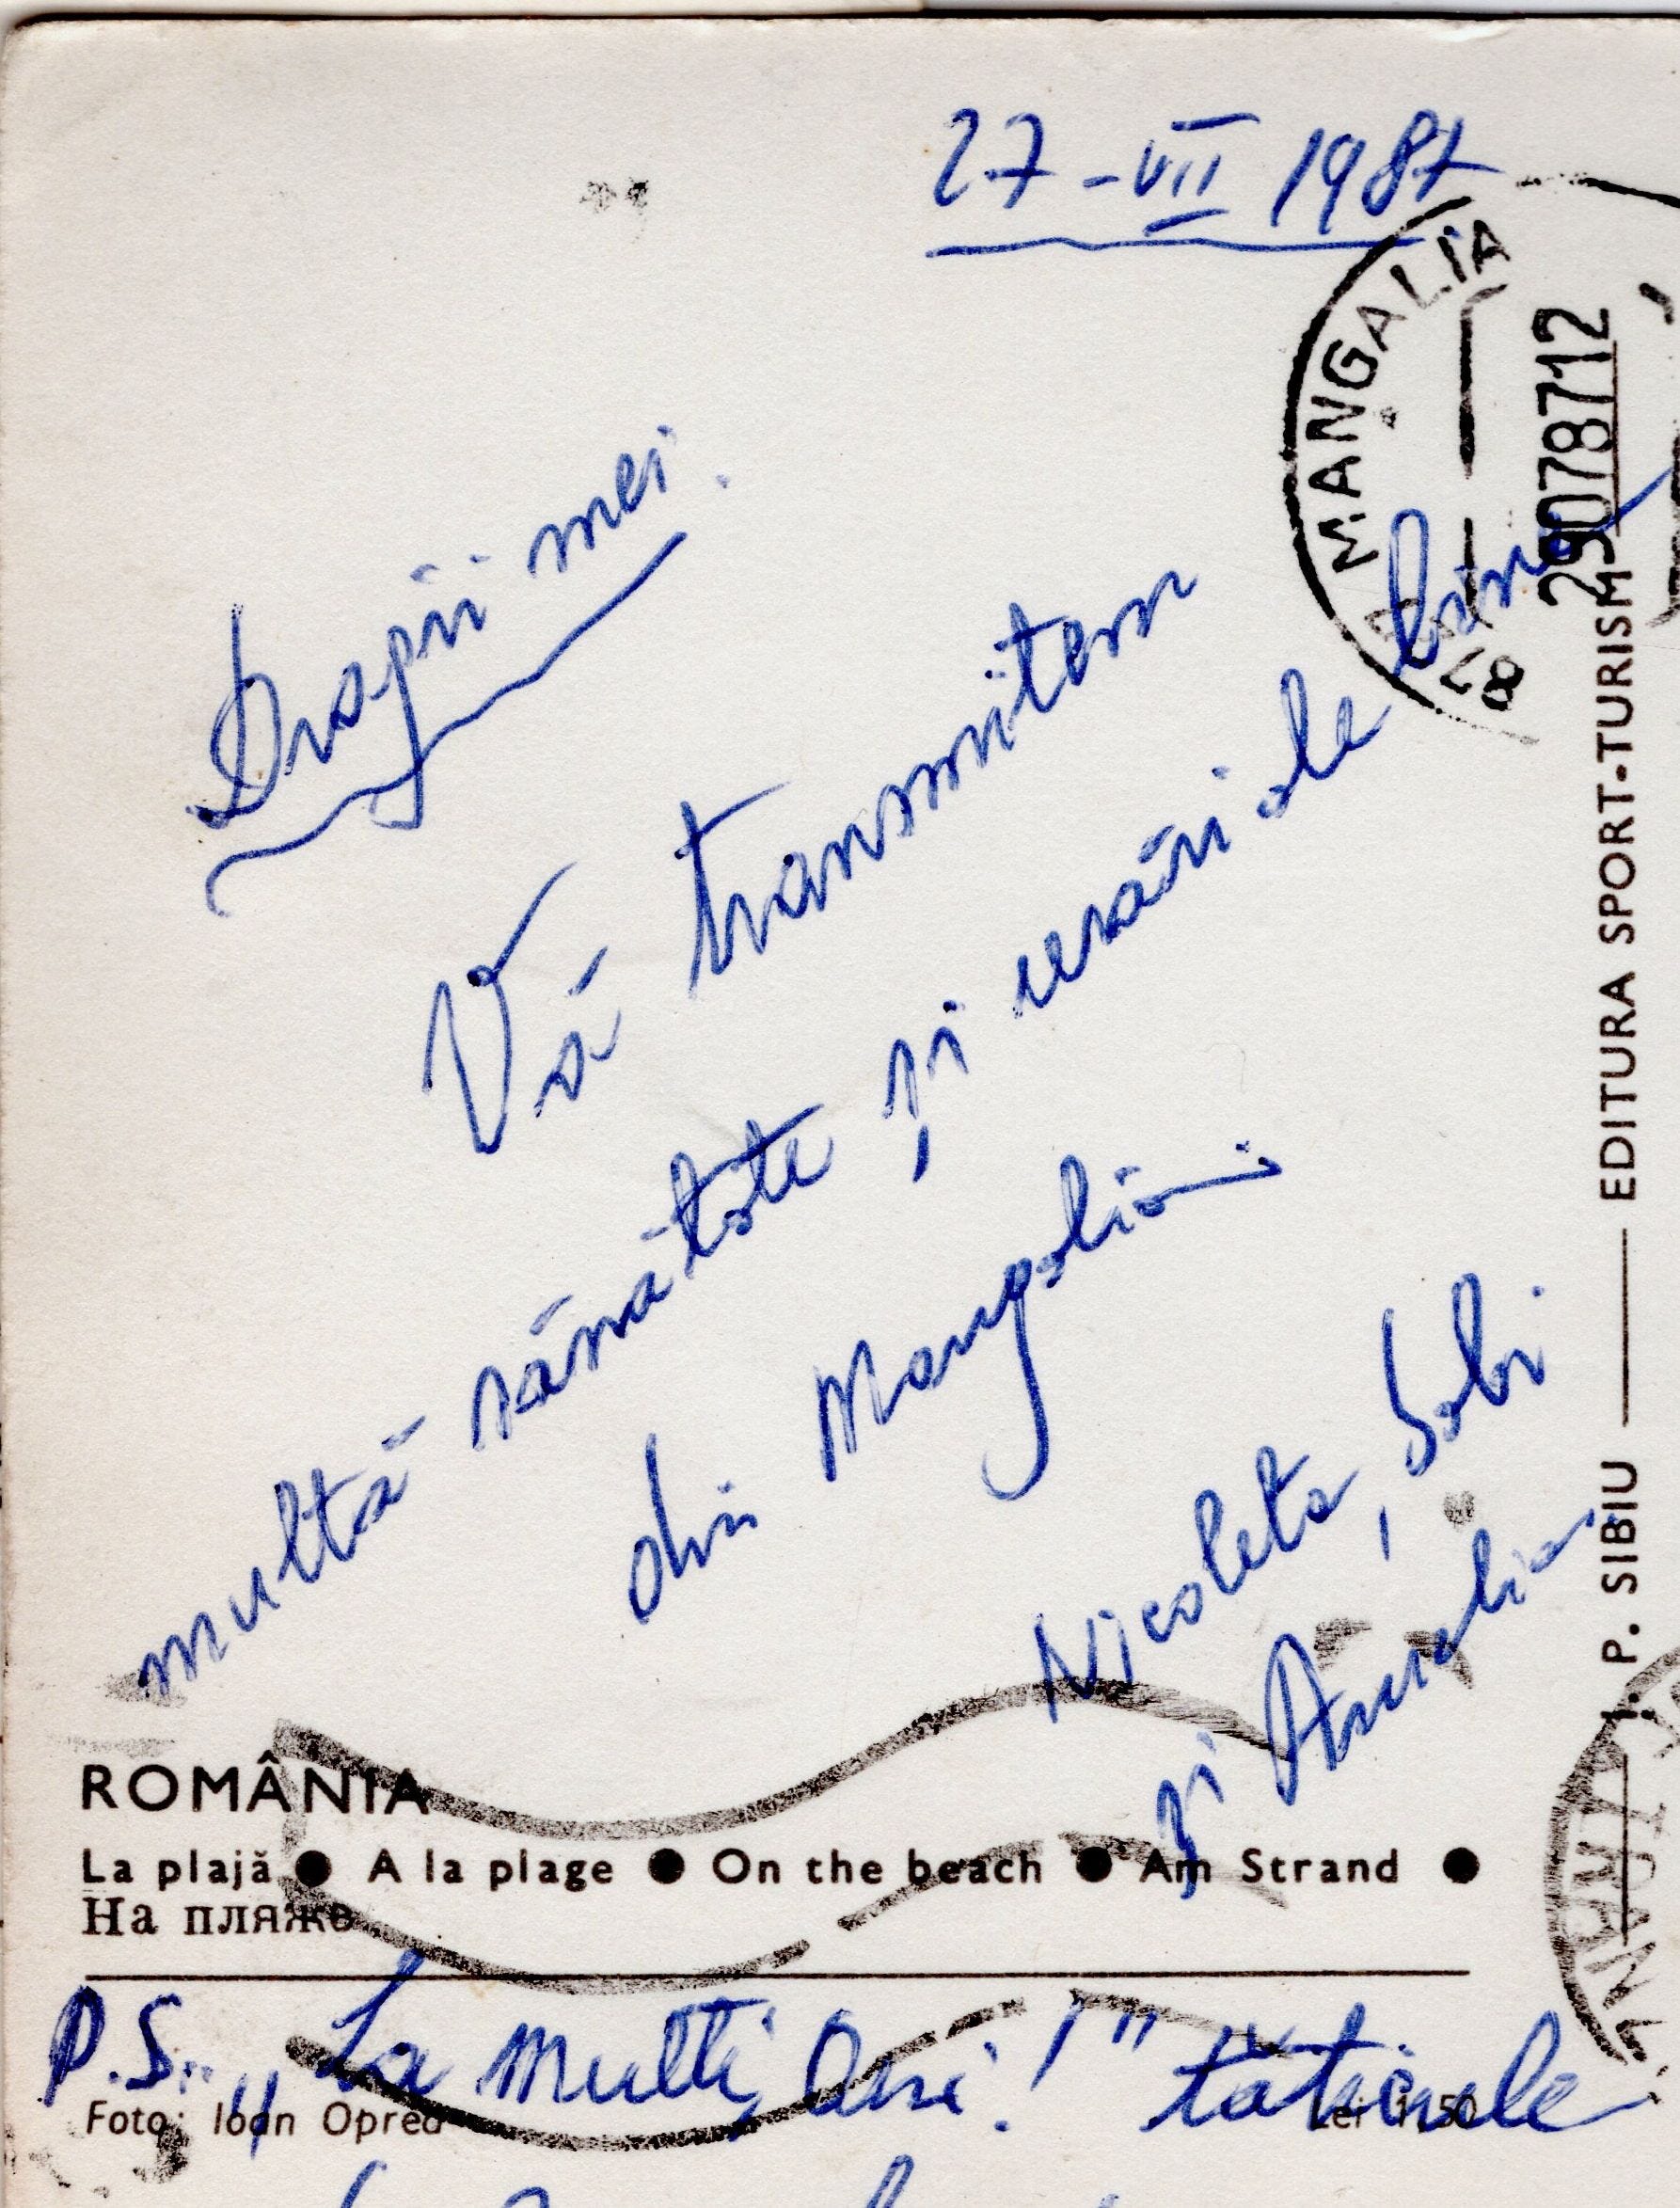 27-VII 1987
MANGALIA
29078712
87
Dragii mei
Vă transmitem
multă sănătate și urări de bine
din Mangalia
Nicoleta, Gabi
și Amalia
EDITURA SPORT-TURISM
I. P. SIBIU
ROMÂNIA
La plajă ● A la plage ● On the beach ● Am Strand ●
На пляже
P.S. „La mulți Ani!" tăticule
Foto: Ioan Oprea
Lei 1,50